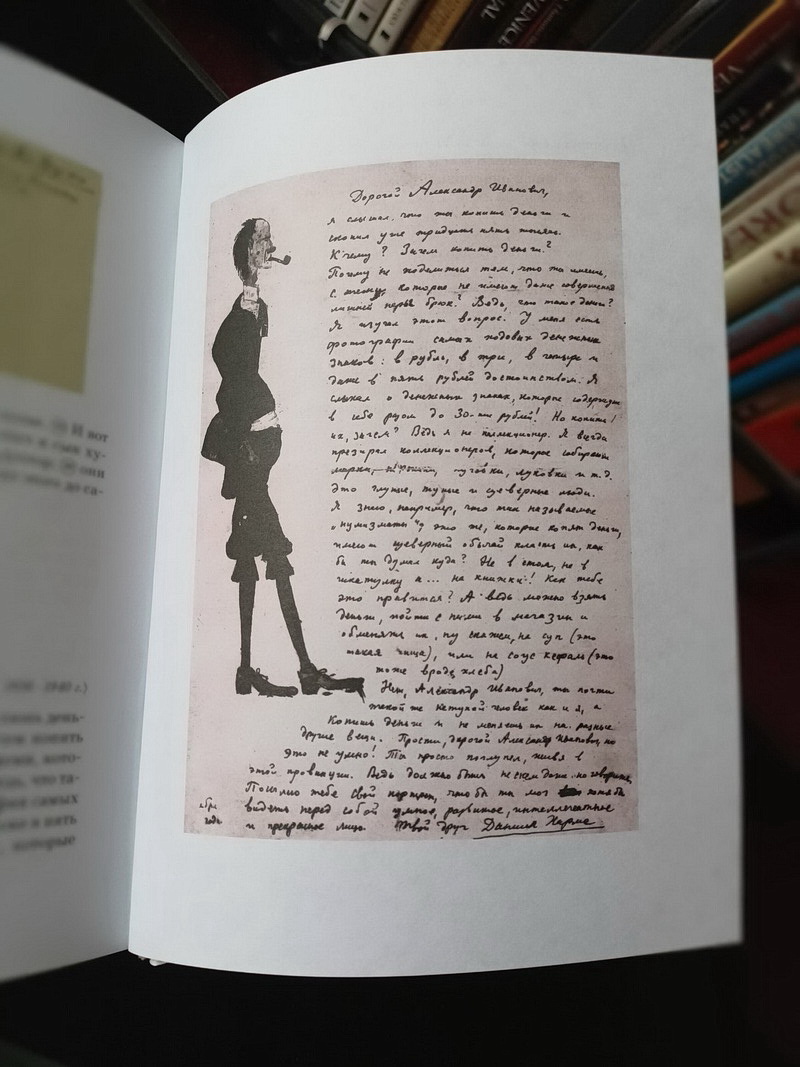 Дорогой Александр Иванович,
я слышал, что ты копишь деньги и
скопил уже тридцать пять тысяч.
К чему? Зачем копить деньги?
Почему не поделиться тем, что ты имеешь,
с теми, которые не имеют даже совершенно
лишней пары брюк? Ведь, что такое деньги?
Я изучал этот вопрос. У меня есть
фотографии самых ходовых денежных
знаков: в рубль, в три, в четыре и
даже в пять рублей достоинством. Я
слыхал о денежных знаках, которые содержут
в себе разом до 30-ти рублей! Но копить
их, зачем? Ведь я не коллекционер. Я всегда
презирал коллекционеров, которые собирают
марки, пёрышки, пуговки, луковки и т.д.
Это глупые, тупые и суеверные люди.
Я знаю, например, что так называемые
"нумизматы", это те, которые копят деньги,
имеют суеверный обычай класть их, как
бы ты думал куда? Не в стол, не в
шкатулку а... на книжки! Как тебе
это нравится? А ведь можно взять
деньги, пойти с ними в магазин и
обменять их, ну скажем, на суп (это
такая пища), или на соус кефаль (это
тоже вроде хлеба)
Нет, Александр Иванович, ты почти
такой же нетупой человек как и я, а
копишь деньги и не меняешь их на разные
другие вещи. Прости, дорогой Александр Иванович, но
это не умно! Ты просто поглупел, живя в
этой провинции. Ведь должно быть не с кем даже поговорить.
Посылаю тебе свой портрет, что бы ты мог хотя бы
видеть перед собой умное, развитое, интеллигентное
и прекрасное лицо. Твой друг Даниил Хармс
И вот
они
до са-
1940 г.)
день-
копить
кото-
что та-
самых
в пять
которые
VENICE